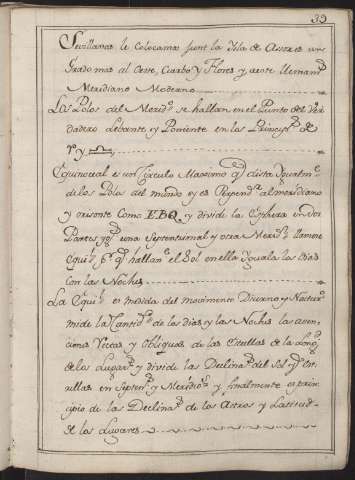 39
Sevillanas le colocamos junt la Isla de Astores un
Grado mas al Oeste, Cuerbo y Flores y a este llaman
Meridiano Moderno
Los Polos del Merid.o se hallan en el Punto del Ver
dadero Lebante y Poniente en los Princip.s de
♈ y ♎
Equinocial es un Circulo Maximo q.e dista Igualm.te
de los Polos del mundo y es Perpend.r al meridiano
y orisonte Como EBQ y divide la Esphera en dos
Partes, una Septentrional y otra Merid.l llamase
Equi.l p.r q.e hallan.e el Sol en ella Yguala los Dias
con las Noches
La Equi.l es medida del movimento Diurno y Noctur
mide la Cantid.d de los dias y las Noches las asen
ciones Rectas y Obliquas de las Estrellas de la Long.d
de los Lugar.s y divide las Declina.s del Sol y Est
rellas en Septen.l y Meridio.l y finalmente es prin
cipio de las Declina.s de los Astros y Latitud.s
de los Lugares